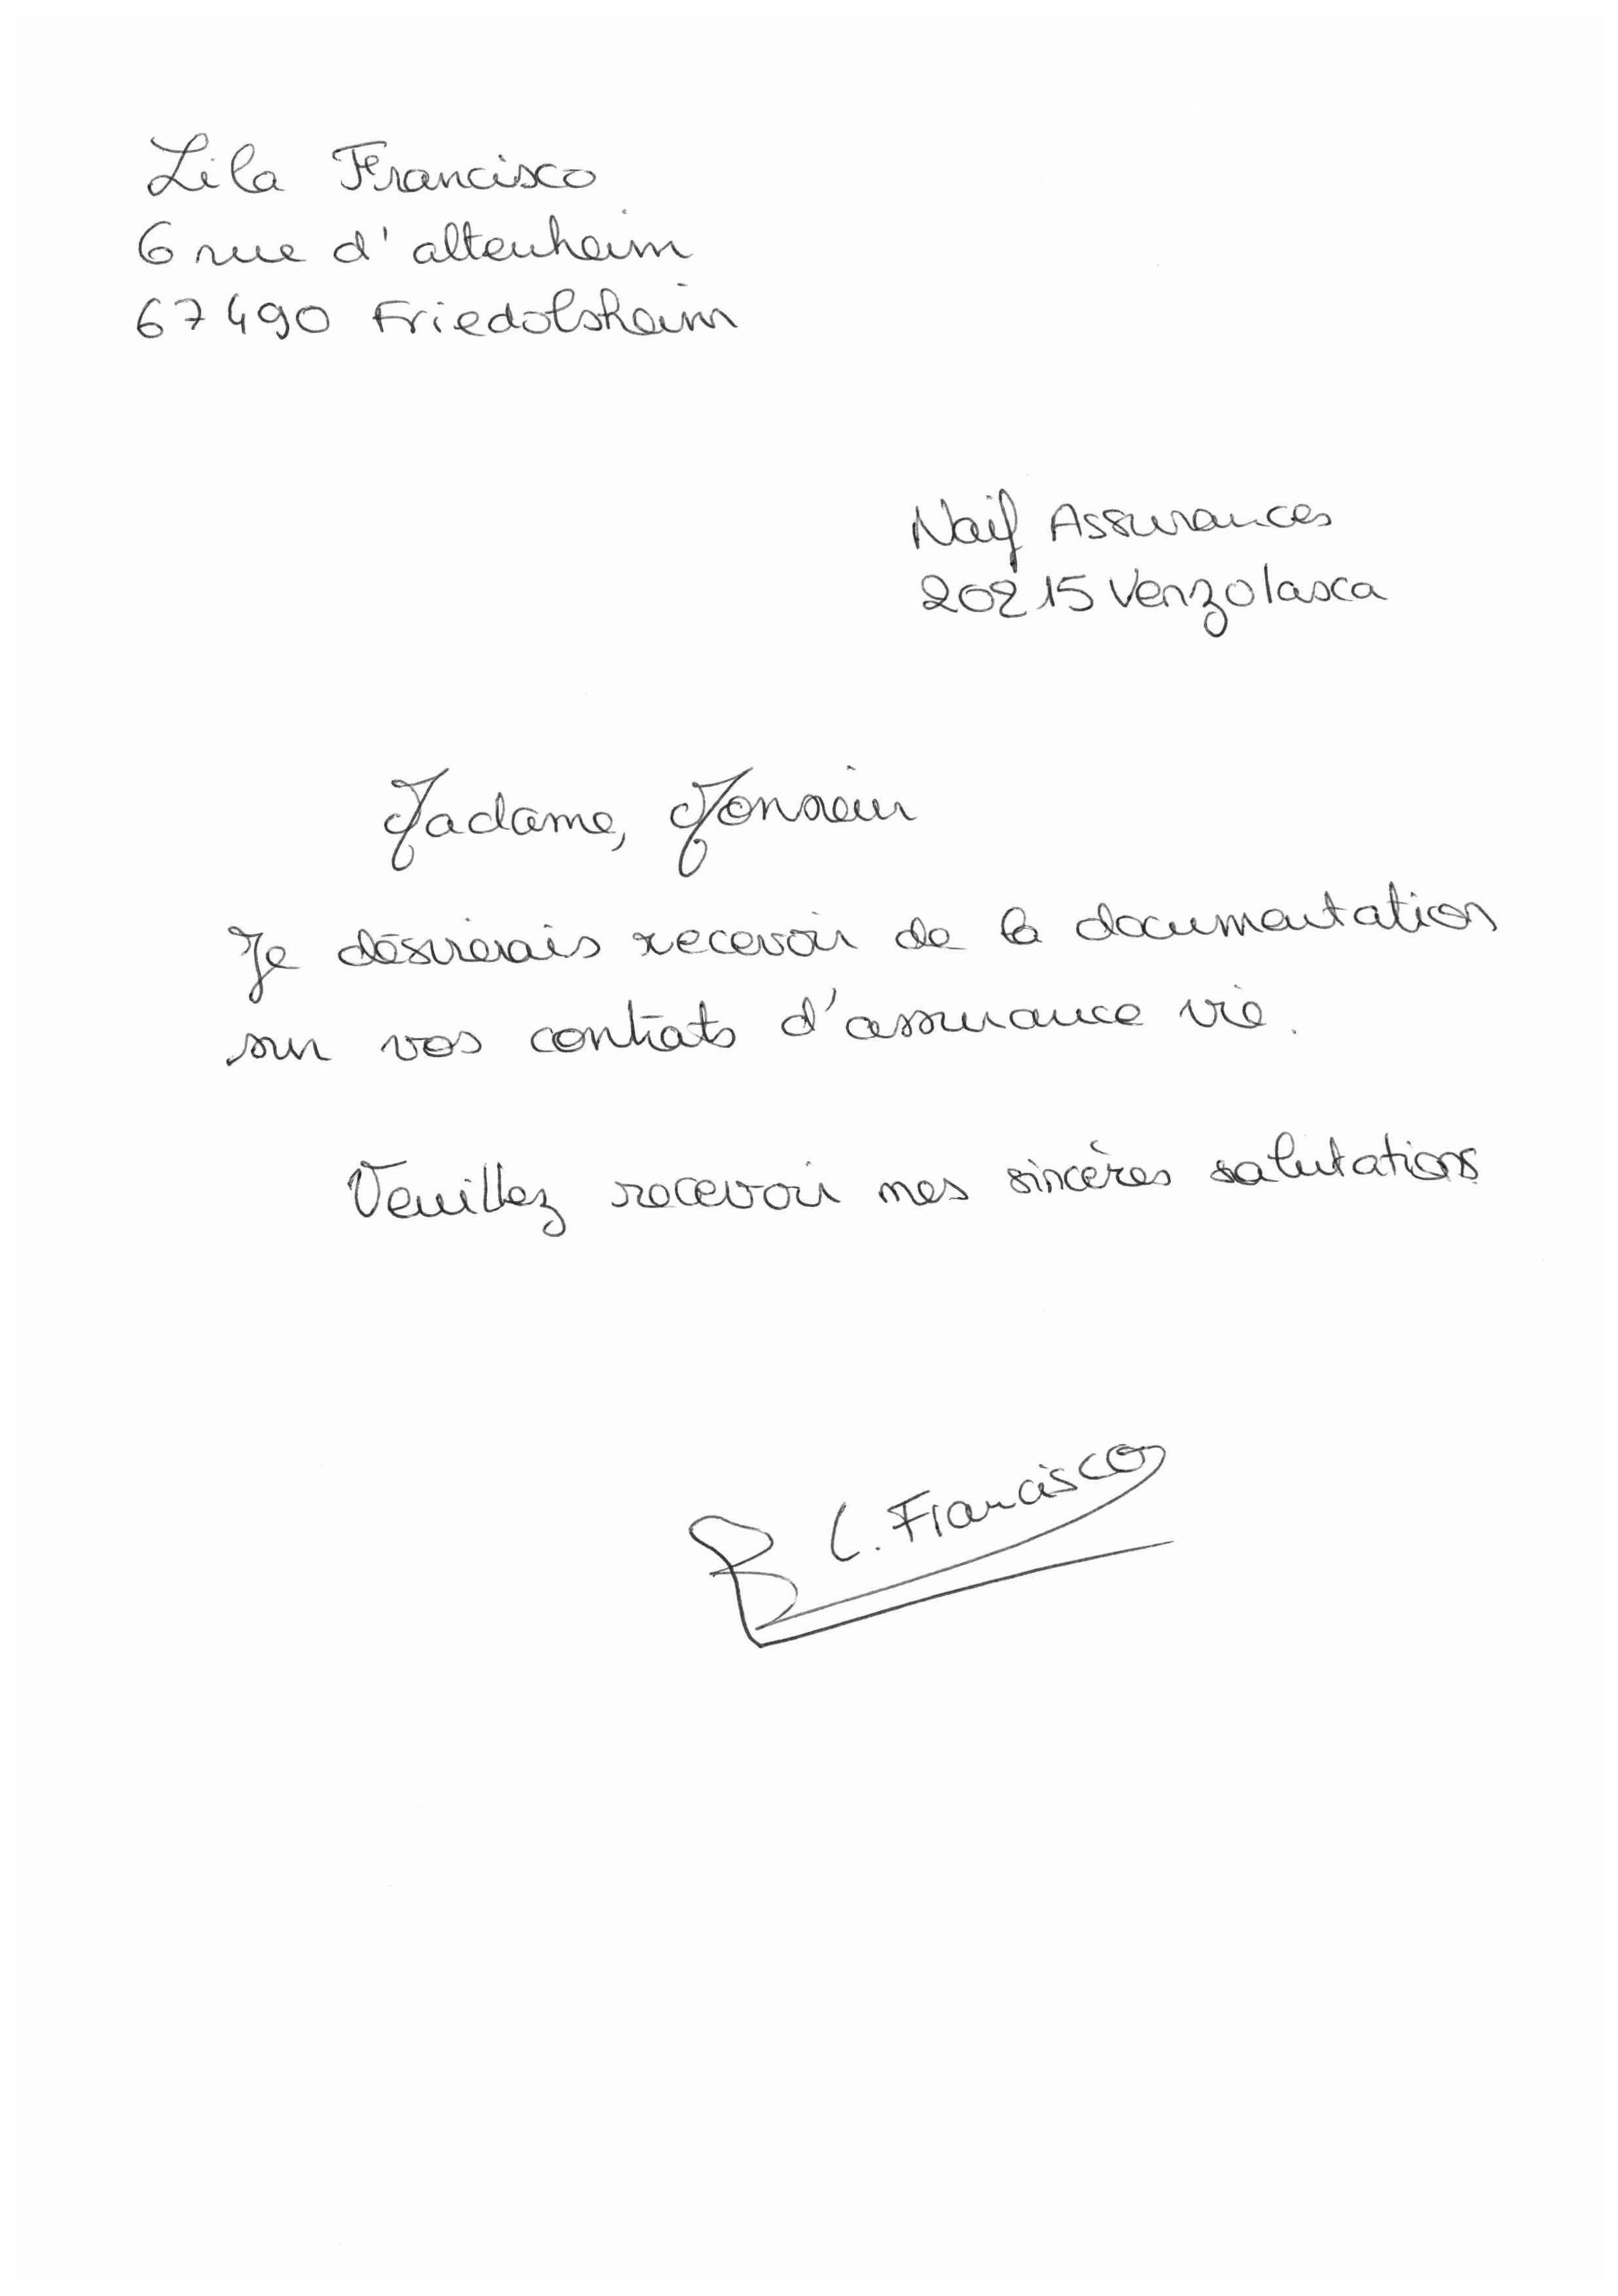 Lila Francisco
6 rue d'altenheim
67490 Friedolsheim
Naif Assurances
20215 Venzolasca
Madame, Monsieur
Je désirerais recevoir de la documentation
sur vos contrats d'assurance vie.
Veuillez recevoir mes sincères salutations
L. Francisco